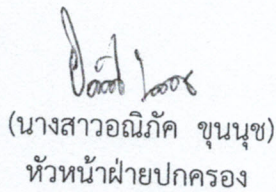 (นางสาวอณิภัค ขุนนุช)
หัวหน้าฝ่ายปกครอง